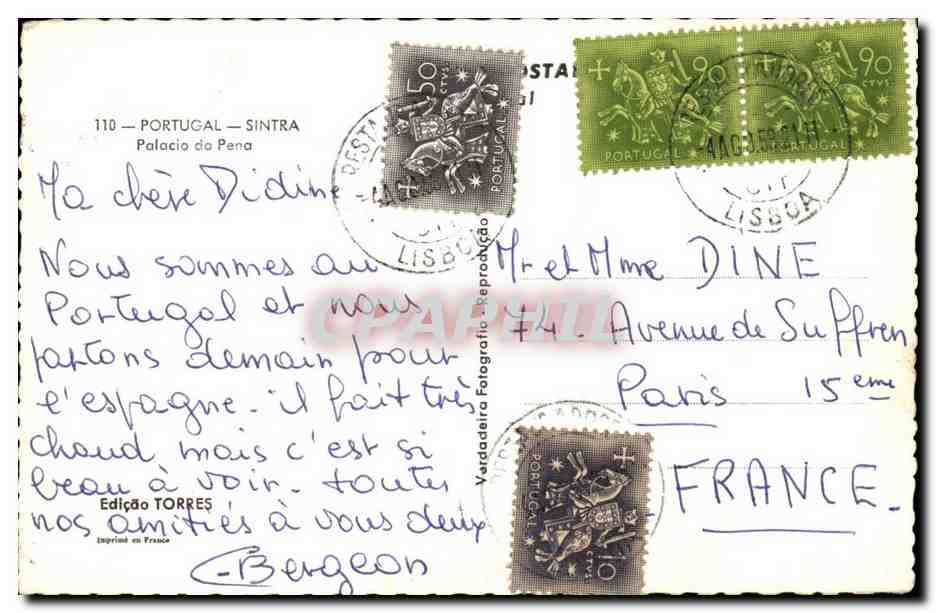 110 — PORTUGAL — SINTRA
Palacio da Pena
Ma chère Didine
Nous sommes au
Portugal et nous
partons demain pour
l'espagne. il fait très
chaud mais c'est si
beau à voir. toutes
nos amitiés à vous deux
Bergeon
Edição TORRES
Imprimé en France
Verdadeira Fotografia - Reprodução
OSTA
al
50
CTVS.
PORTUGAL
LISBOA
90
PORTUGAL
90
CTVS
PORTUGAL
LISBOA
Mr et Mme DINE
74. Avenue de Suffren
Paris 15eme
FRANCE.
PORTUGAL
CTVS
10
CPAPHIL